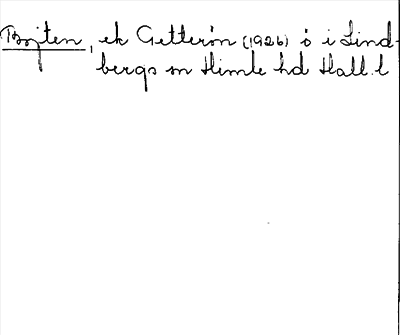 Bojten, ek Getterön (1926) ö i Lind-
bergs sn Himle hd Hall. l